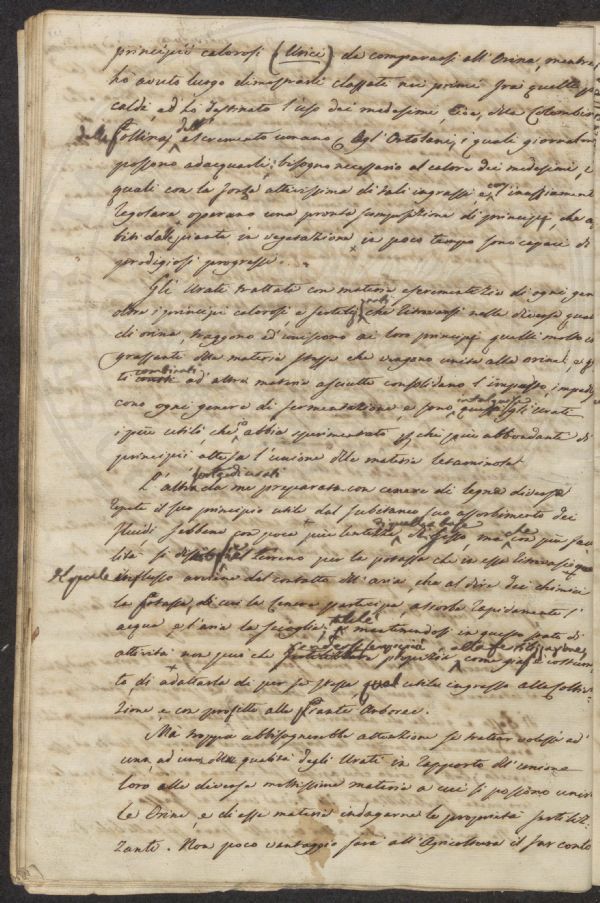 principii calorosi (Urici) da compararsi all'Orina, mentre
ho avuto luogo dimostrarli classati nei primi fra quelli più
caldi, ed ho destinato l'uso dei medesimi, cioè, della Colombina
della Pollina, dell' escremento umano agl'Ortolani, i quali giornalm
possono adacquarli, bisogno necessario al calore dei medesimi, i
quali con la forza attivissima di tali ingrassi e con l'innaffiamento
regolare, operano una pronta di principii, che
dalle piante in vegetazione, in poco tempo sono capaci di
prodigiosi progressi.
Gl'Urati trattati con materie escrementizie di ogni gen
oltre i principii calorosi, e fertili, che ritrovansi nelle diverse qual
di orina, traggono ed uniscono ai loro principii quelli molto in
grassanti della materia stessa che vengono unite alle orine, e
combinati ad altre materie asciutte consolidano l'impasto, imped
cono ogni genere di fermentazione e sono gli Urati
i più utili, che io abbia sperimentato, chi più abbondante di
principii attesa l'unione delle materie letaminose
L'altra da me preparata con cenere di legna diverse
il suo principio utile dal subitaneo suo assorbimento dei
fluidi sebbene con poca più lentezza di gesso, ma con più faci
lità si terreno per la potassa che in essa ritrovasi
il quale influsso avviene dal contatto dell'aria, che al dire dei chimici
la Potassa, di cui la Cenere partecipa assorbe rapidamente l'
acqua, e l'aria la scioglie, mantenendosi in questo stato di
attività non può che proprietà come pia costum
to di adattarla di per se stessa qual utile ingrasso alla
zione e con profitto alle Piante Arboree.
Ma troppa abbisognerebbe attenzione se trattar volessi ad
una, ad una, delle qualità degli Urati in rapporto all'unione
loro alle diverse moltissime materie a cui si possono unire
le Orine, e di esse materie indagarne le proprietà fertiliz
zanti. Non poco vantaggio sarà all'Agricoltura il far conto